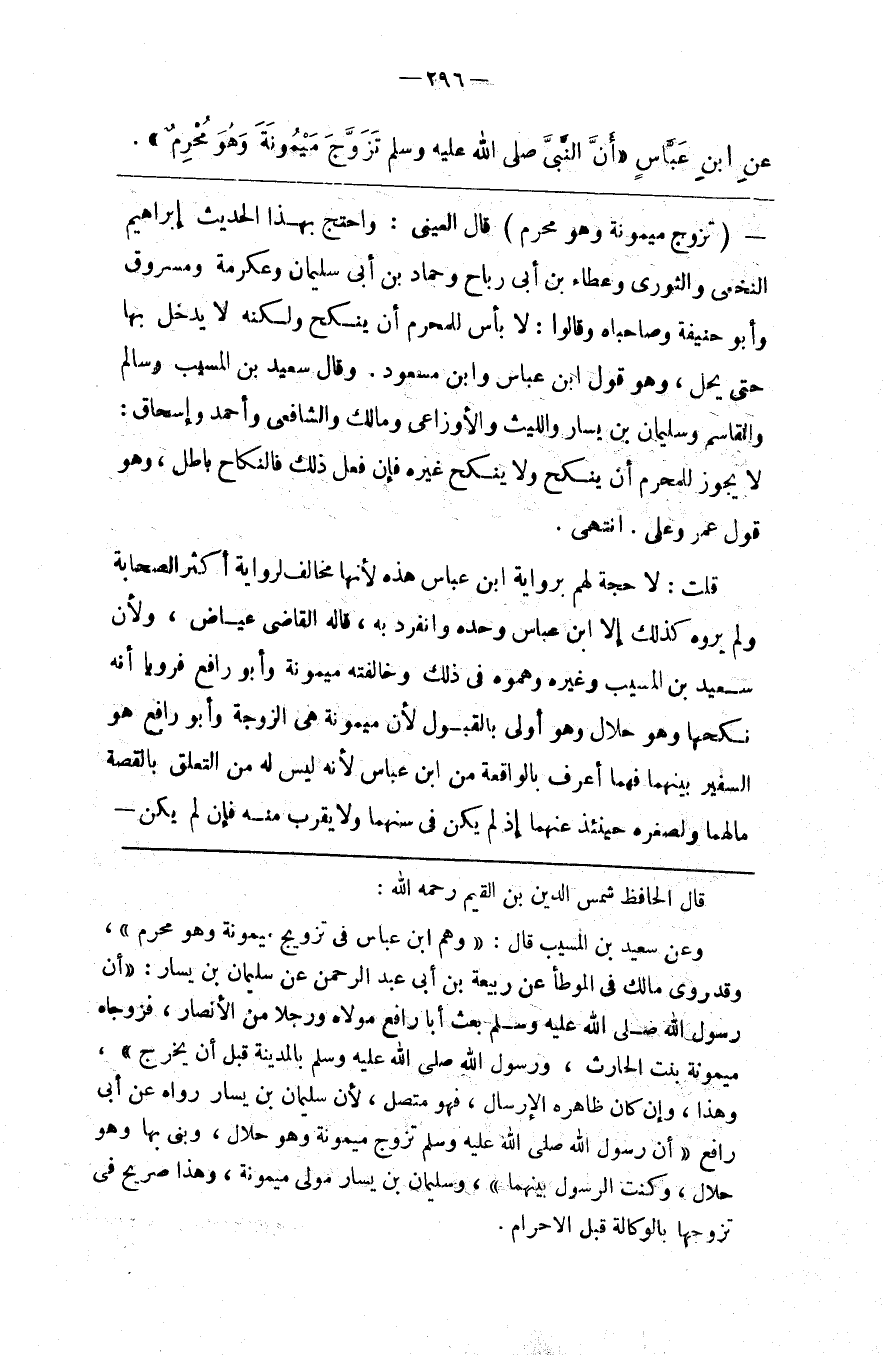 —٢٩٦—
عنِ ابنِ عَبَّاسٍ «أَنَّ النَّبِىَّ صلى الله عليه وسلم تَزَوَّجَ مَيْمُونَةَ وَهُوَ مُحْرِمٌ» .
— ( تزوج ميمونة وهو محرم ) قال العينى : واحتج بهـذا الحديث إبراهيم
النخعى والثورى وعطاء بن أبى رباح وحماد بن أبى سليمان وعكرمة ومسروق
وأبو حنيفة وصاحباه وقالوا : لا بأس للمحرم أن ينـكح ولـكنه لا يدخل بها
حتى يحل ، وهو قول ابن عباس وابن مسعود . وقال سعيد بن المسيب وسالم
والقاسم وسليمان بن يسار والليث والأوزاعى ومالك والشافعى وأحمد وإسحاق :
لا يجوز للمحرم أن ينـكح ولا ينـكح غيره فإن فعل ذلك فالنكاح باطل ، وهو
قول عمر وعلى . انتهى .
قلت : لا حجة لهم برواية ابن عباس هذه لأنها مخالف لرواية أكثر الصحابة
ولم يروه كذلك إلا ابن عباس وحده وانفرد به ، قاله القاضى عيـاض ، ولأن
سـعيد بن المسيب وغيره وهموه فى ذلك وخالفته ميمونة وأبو رافع فرويا أنه
نـكحها وهو حلال وهو أولى بالقبـول لأن ميمونة هى الزوجة وأبو رافع هو
السفير بينهما فهما أعرف بالواقعة من ابن عباس لأنه ليس له من التعلق بالقصة
مالهما ولصغره حينئذ عنهما إذ لم يكن فى سنهما ولا يقرب منـه فإن لم يكن —
قال الحافظ شمس الدين بن القيم رحمه الله :
وعن سعيد بن المسيب قال : « وهم ابن عباس فى تزويج ميمونة وهو محرم » ،
وقد روى مالك فى الموطأ عن ربيعة بن أبى عبد الرحمن عن سليمان بن يسار : «أن
رسول الله صـلى الله عليه وسـلم بعث أبا رافع مولاه ورجلا من الأنصار ، فزوجاه
ميمونة بنت الحارث ، ورسول الله صلى الله عليه وسلم بالمدينة قبل أن يخرج » ،
وهذا ، وإن كان ظاهره الإرسال ، فهو متصل ، لأن سليمان بن يسار رواه عن أبى
رافع « أن رسول الله صلى الله عليه وسلم تزوج ميمونة وهو حلال ، وبنى بها وهو
حلال ، وكنت الرسول بينهما » ، وسليمان بن يسار مولى ميمونة ، وهذا صريح فى
تزوجها بالوكالة قبل الاحرام .